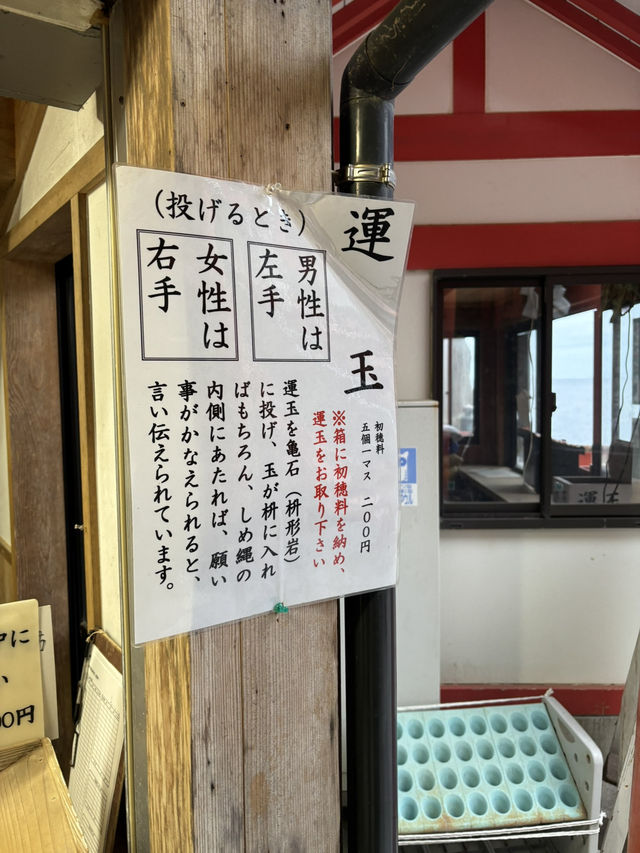 運玉
初穂料
五個一マス 二〇〇円
※箱に初穂料を納め、
運玉をお取り下さい
（投げるとき）
男性は
左手
女性は
右手
運玉を亀石（枡形岩）
に投げ、玉が枡に入れ
ばもちろん、しめ縄の
内側にあたれば、願い
事がかなえられると、
言い伝えられています。
運玉
中に
00円